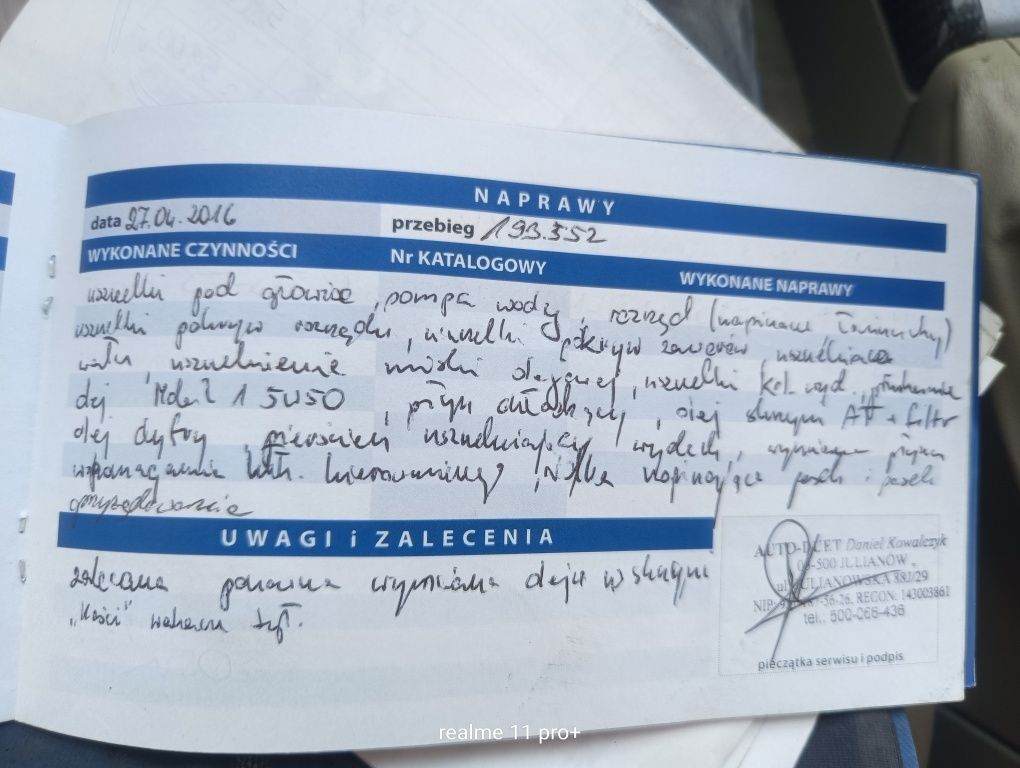 NAPRAWY
data 27.04.2016 przebieg 193.552
WYKONANE CZYNNOŚCI Nr KATALOGOWY WYKONANE NAPRAWY
uszczelki pod głowice, pompa wody, rozrząd (napinacze łańcuchy)
uszczelki pokryw rozrządu, uszczelki pokryw zaworów, uszczelniacz
wału uszczelnienie miski olejowej, uszczelki kol. wyd.
olej Mobil 1 5W50, płyn chłodzący, olej skrzyni ATF + filtr
olej dyfry, pierścień uszczelniający wydech, wymiana płynu
wspomagania ukł. kierowniczego, rolka napinająca paska i pasek
UWAGI i ZALECENIA
zalecana ponowna wymiana oleju w skrzyni
"kości" wahacza tył.
AUTO- Daniel Kowalczyk
05-500 JULIANÓW
ul. JULIANOWSKA 88J/29
REGON: 143003861
tel.: 500-066-436
pieczątka serwisu i podpis
realme 11 pro+